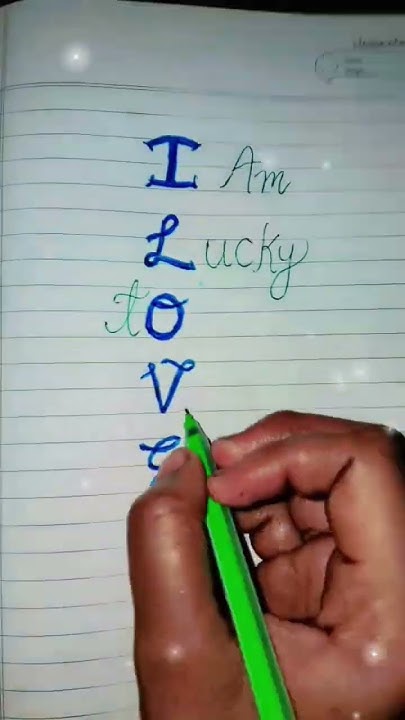 I Am
Lucky
to
V